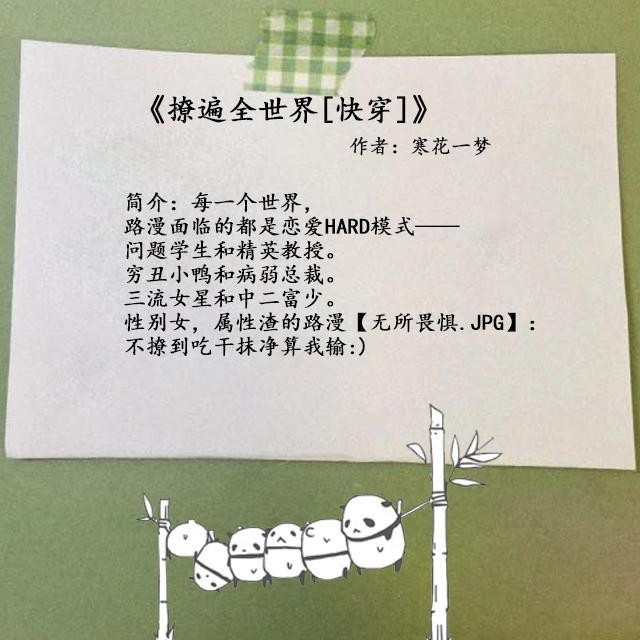 《撩遍全世界[快穿]》
作者：寒花一梦
简介：每一个世界，
路漫面临的都是恋爱HARD模式——
问题学生和精英教授。
穷丑小鸭和病弱总裁。
三流女星和中二富少。
性别女，属性渣的路漫【无所畏惧.JPG】：
不撩到吃干抹净算我输:)